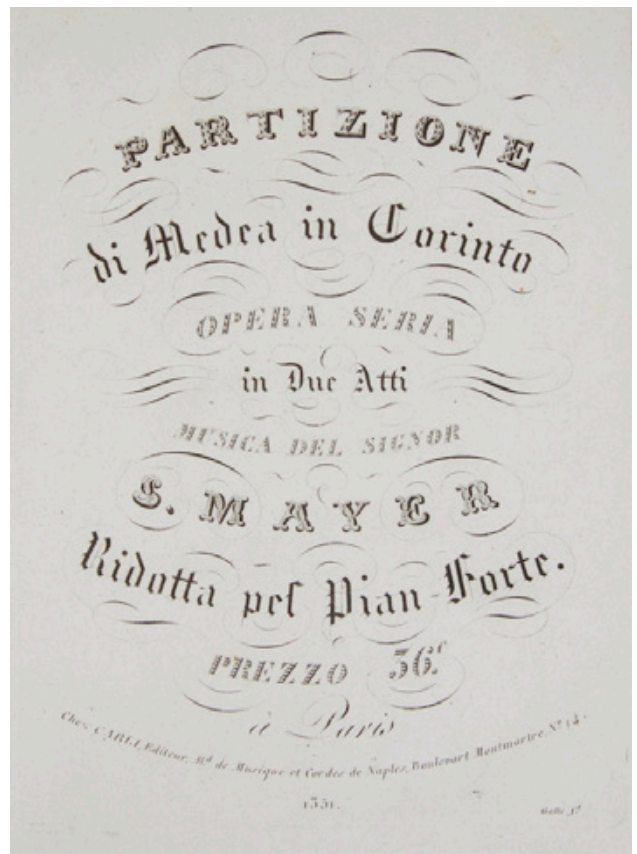 PARTIZIONE
di Medea in Corinto
OPERA SERIA
in Due Atti
MUSICA DEL SIGNOR
S. MAYER
Ridotta pel Pian-Forte.
PREZZO 36.f
à Paris
Chez CARLI, Editeur, Md. de Musique et Cordes de Naples, Boulevart Montmartre, No. 14.
1351.